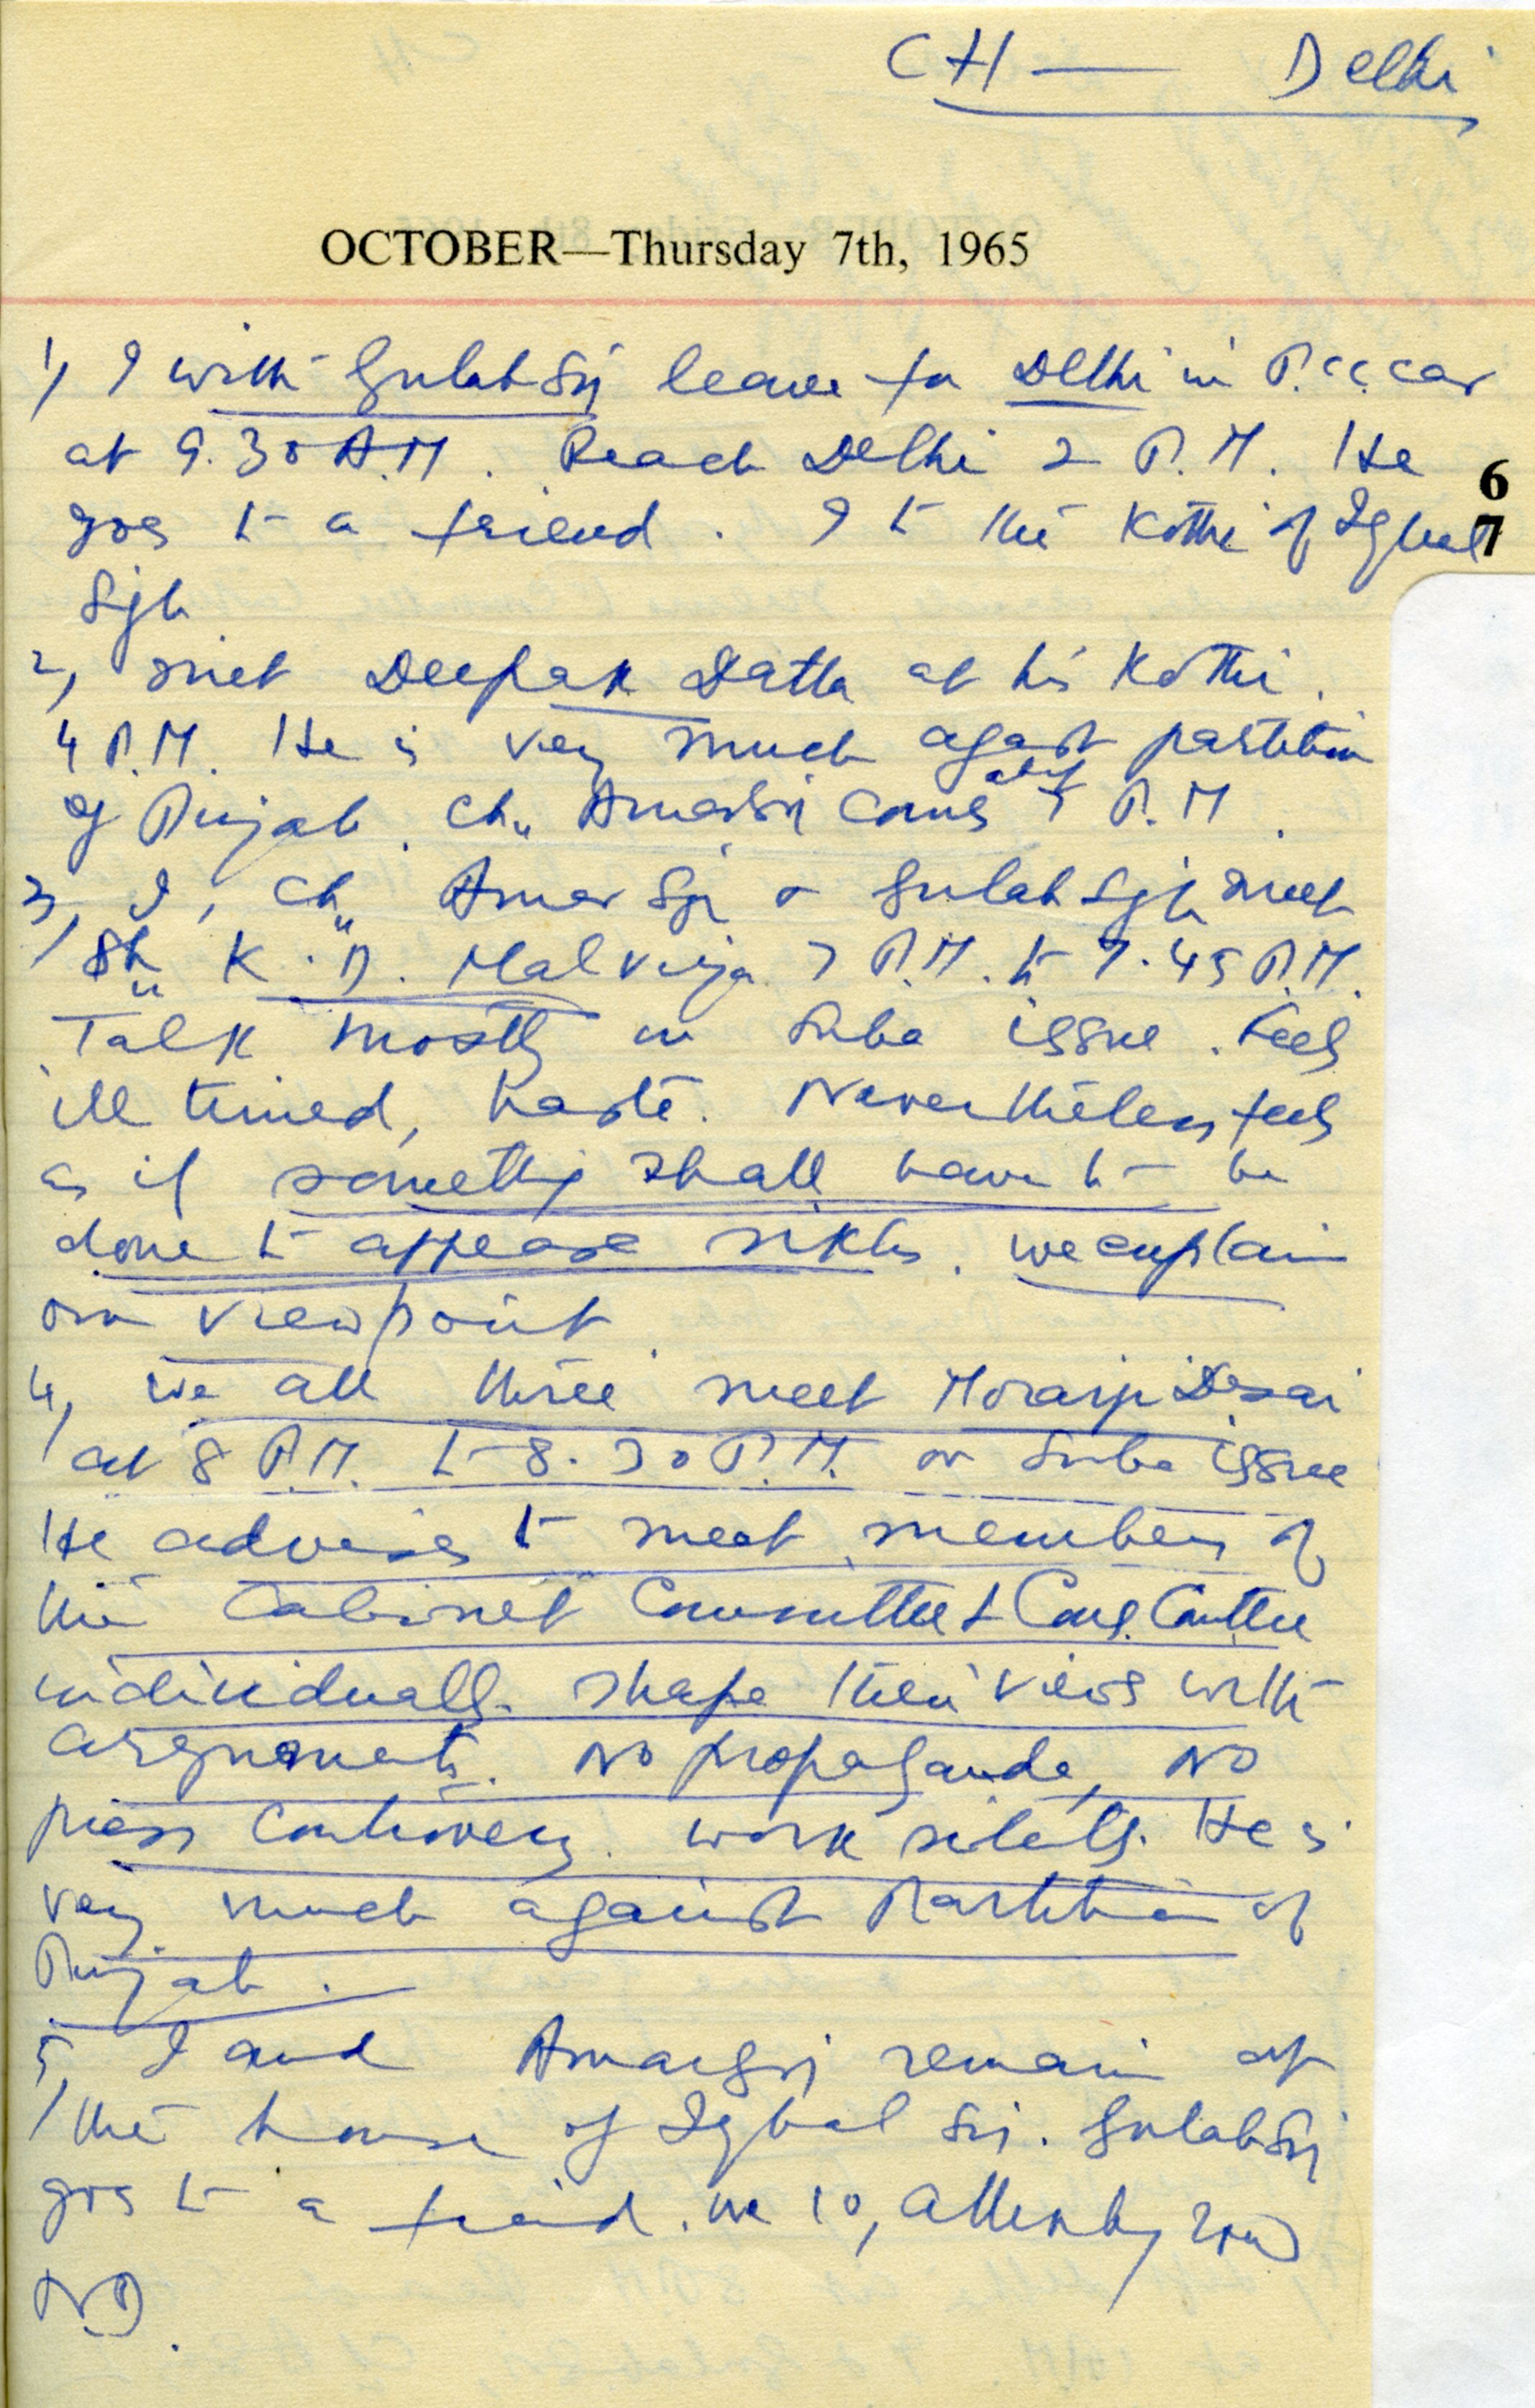 CH — Delhi
OCTOBER—Thursday 7th, 1965
1, I with Gulab Sij leave for Delhi in P.C.C. car
at 9.30 A.M. Reach Delhi 2 P.M. He
6
goes to a friend. I to the Kothi of Iqbal
7
Sigh
2, met Deepak Datta at his Kothi.
4 P.M. He is very much agast partition
of Punjab. Ch. Amar Sij comes at P.M.
3, I, Ch. Amar Sij & Gulab Sigh meet
Sh. K. D. Malviya 7 P.M. to 7.45 P.M.
Talk mostly on Suba issue. Feels
ill timed, haste. Nevertheless feels
as if something shall have to be
done to appease sikhs. we explain
our viewpoint.
4, we all three meet Morarji Desai
at 8 P.M. to 8.30 P.M. on Suba issue
He advises to meet members of
the Cabinet Committee & Cong. Cmttee
individually. shape their views with
arguments. No propaganda, No
press controversy. work silently. He is
very much against Partition of
Punjab.
5, I and Amar Sij remain at
the house of Iqbal Sij. Gulab Sij
goes to a friend. we 10, Allenby road
N.D.